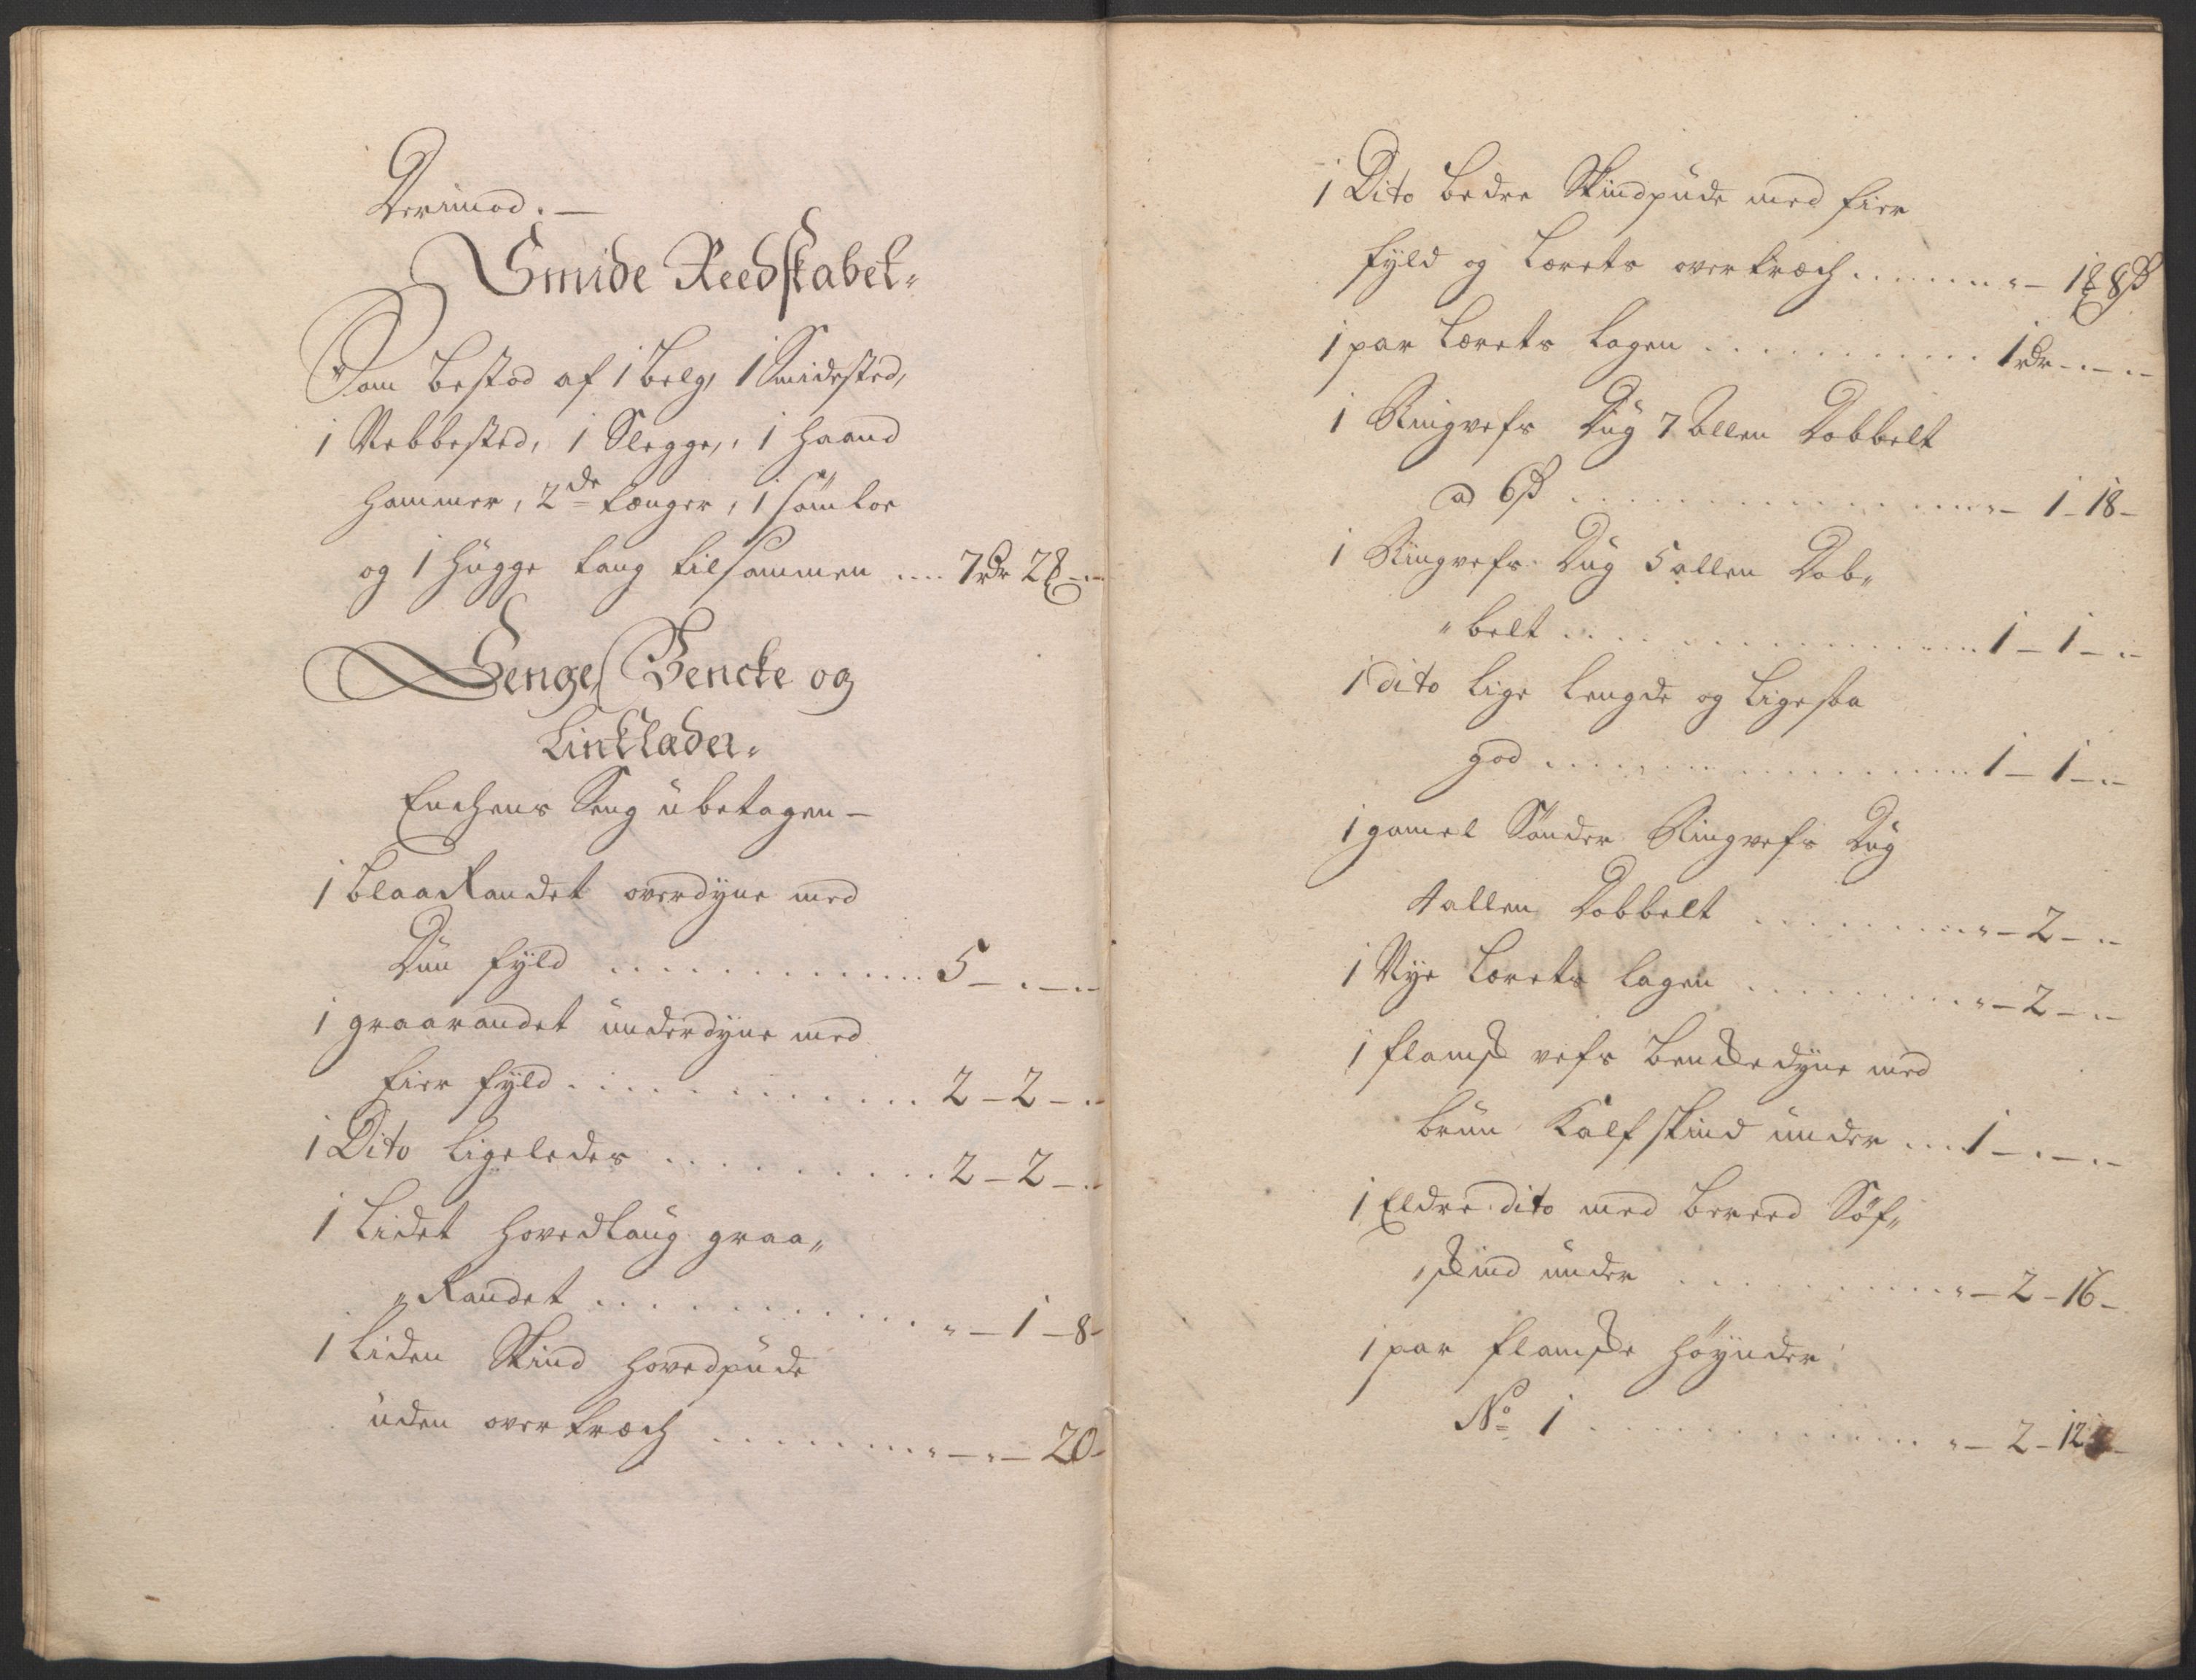 Derimod. —
Smide Reedskabet.
Som bestod af 1 belg, 1 Smidested,
1 Nebbested, 1 Slegge, 1 haand
hammer, 2de tænger, 1 sömloe
og 1 hugge tang tilsammen .... 7 rdr 2 ß - . -
Senge, Bencke og
Linklæder.
Enchens Seng ubetagen —
1 blaaRandet overdyne med
Dun fyld . . . . . . . . . . . . 5 - . - . -
1 graarandet underdyne med
fier fyld . . . . . . . . . . . . 2 - 2 - . -
1 Dito ligeledes . . . . . . . . . . 2 - 2 - . -
1 Lidet hovedlaug graa„
„Randet . . . . . . . . . . . . „ - 1 - 8 -
1 liden Skind hovedpude
uden overtræch . . . . . . . . „ - „ - 20 -
1 Dito bedre Skindpude med fier
fyld og Lærets overtræch . . . . . . „ - 1 ß 8 ß
1 par Lærets Lagen . . . . . . . . . . 1 rdr - . - . -
1 Ringvefs Dug 7 allen Dobbelt
ad 6 ß . . . . . . . . . . . . „ - 1 - 18 -
1 Ringvefs Dug 5 allen Dob„
„belt . . . . . . . . . . . . 1 - 1 - . -
1 dito lige lengde og ligesaa
god . . . . . . . . . . . . 1 - 1 - . -
1 gamel Sönder Ringvefs Dug
4 allen Dobbelt . . . . . . . . „ - 2 - . -
1 Nye Lærets lagen . . . . . . . . „ - 2 - . -
1 flamsk vefs benckedyne med
brun Kalfskind under . . . 1 - . - . -
1 Eldre dito med bereed Söf„
„skind under . . . . . . . . . „ - 2 - 16 -
1 par flamske höynder
No 1 . . . . . . . . . . . . „ - 2 - 12 -